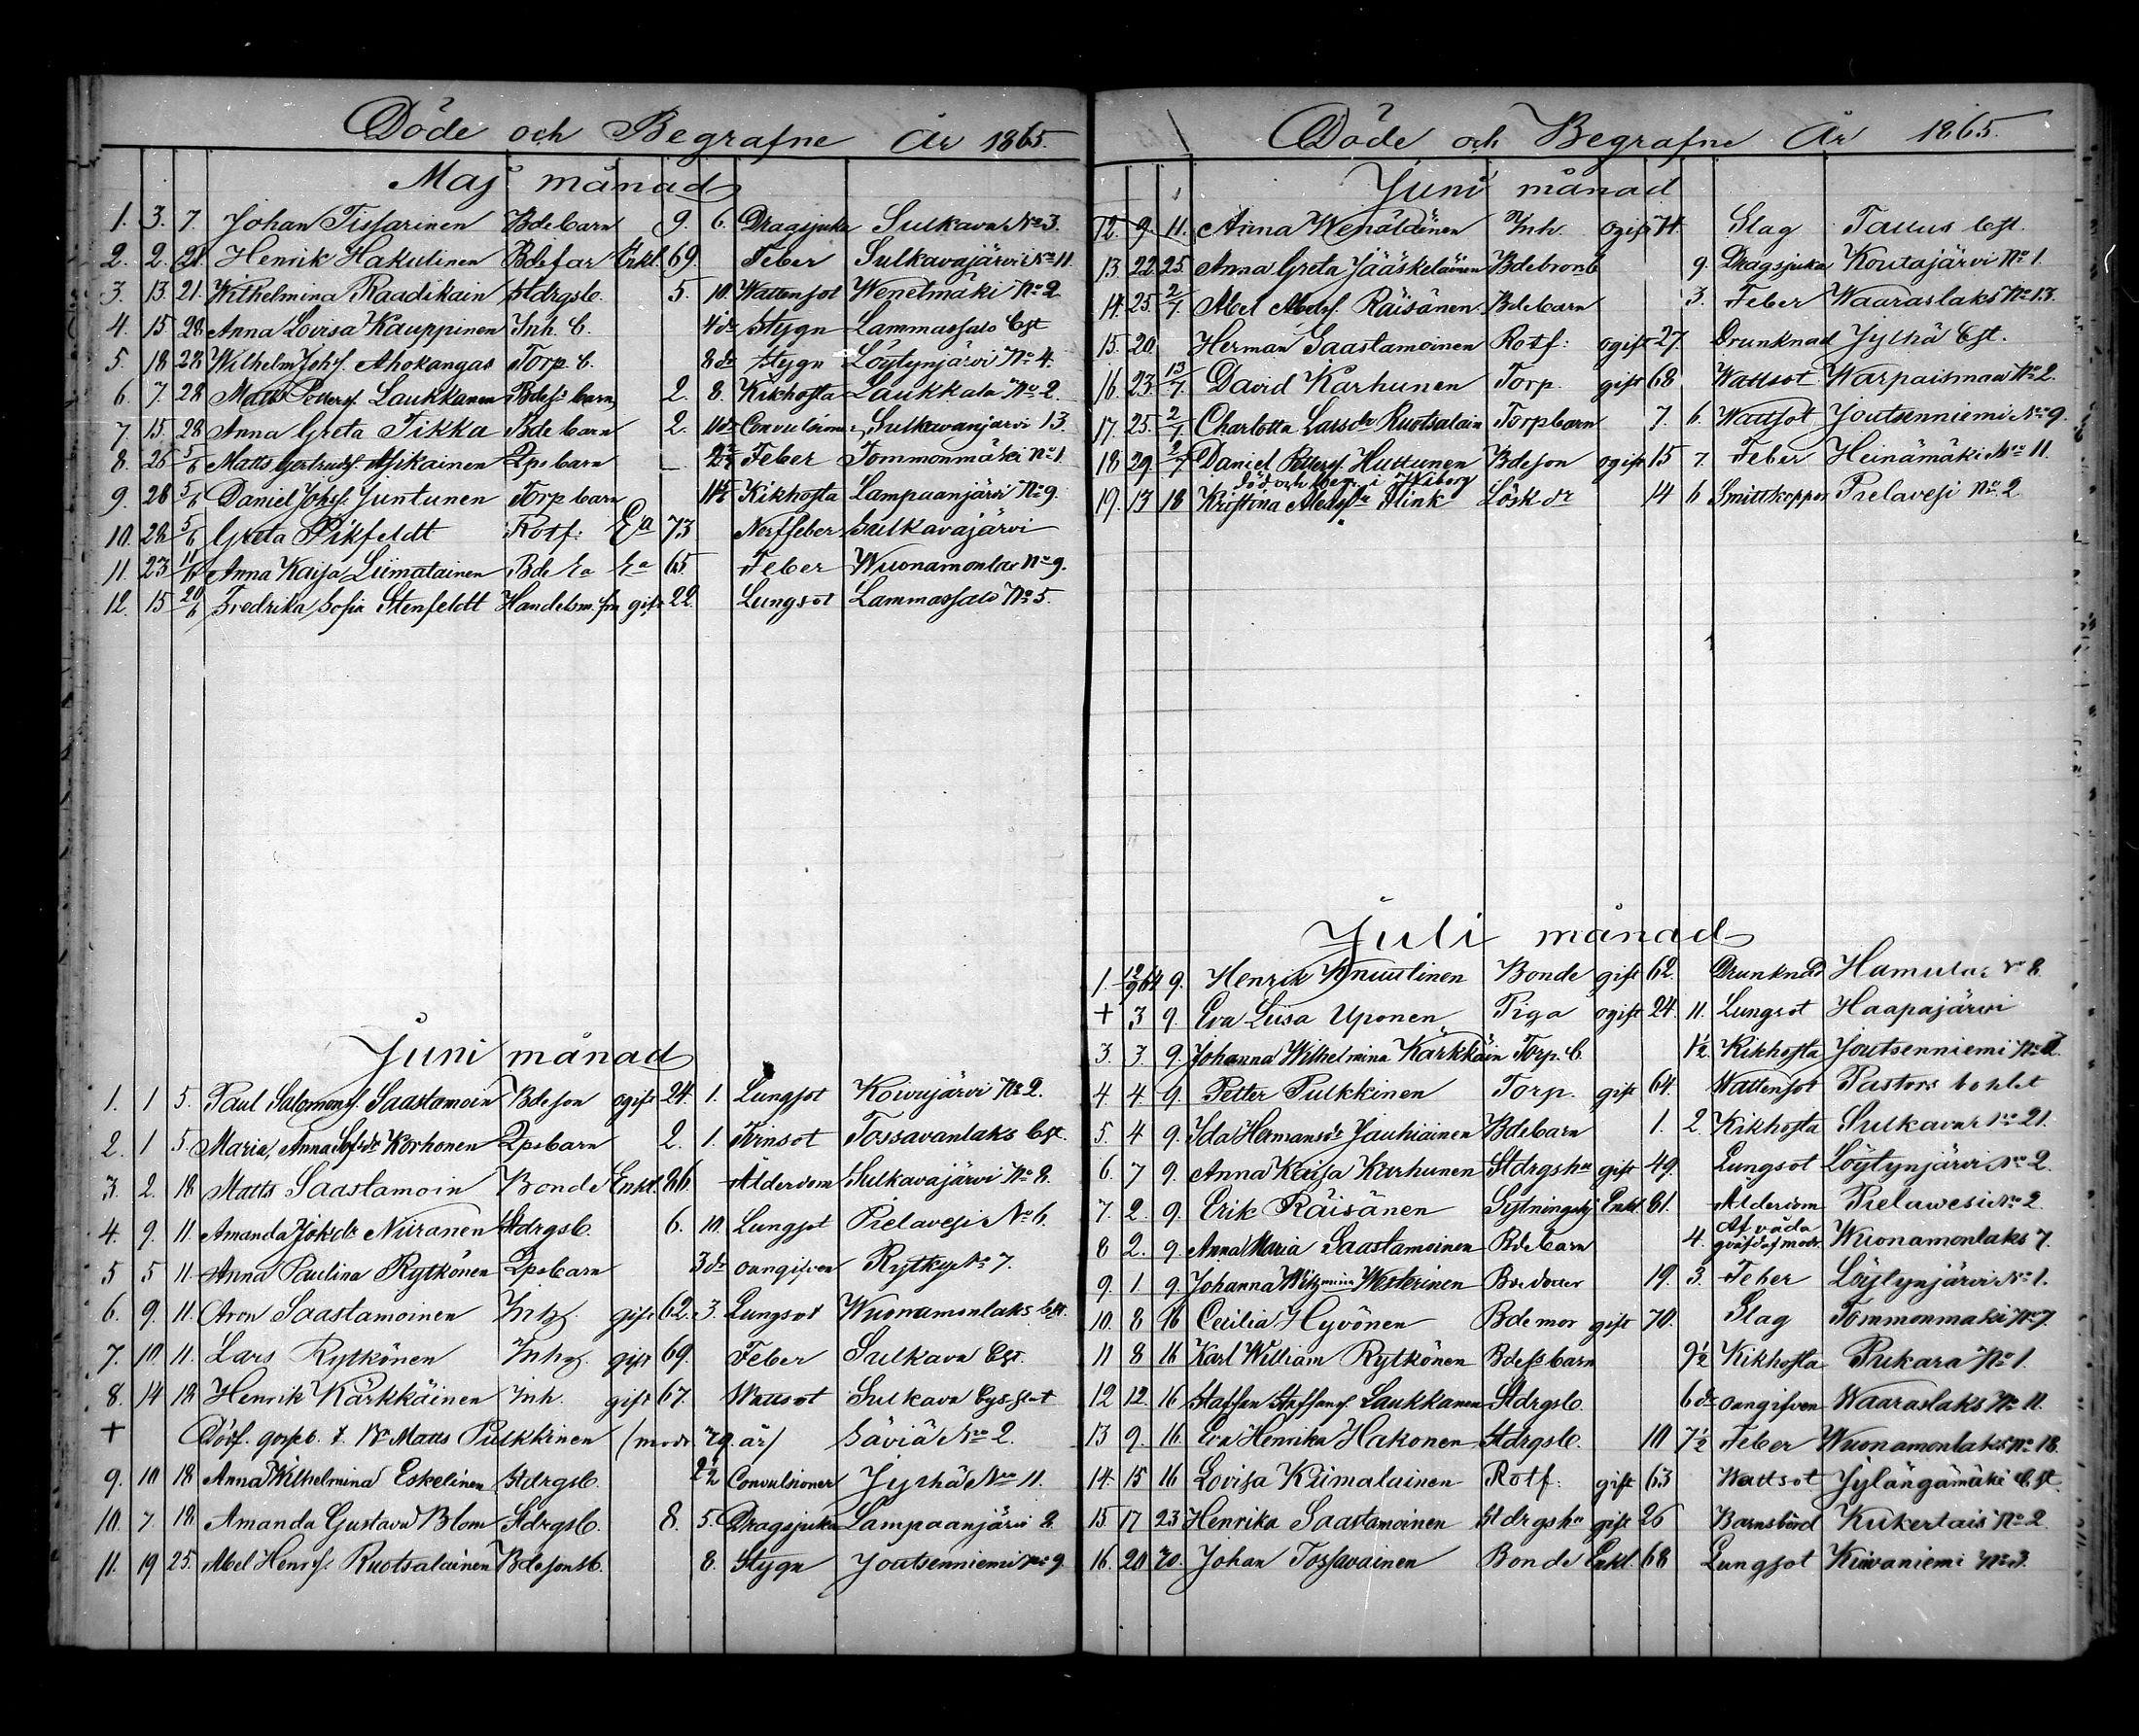 Döde och Begrafne År 1865.
Maj månad
1. 3. 7. Johan Tissarinen Bdebarn 9. 6. Dragsjuka Sulkava No 3.
2. 2. 21. Henrik Hakulinen Bdefar Enkl. 69. Feber Sulkavajärvi No 11
3. 13. 21. Wilhelmina Raadikain Stdrgsb. 5. 10. Wattensot Wenetmäki No 2
4. 15 28 Anna Lovisa Kauppinen Inh. b. 4 dr Stygn Lammassalo Cst
5. 18 28 Wilhelm Johs. Ahokangas Torp. b. 8 dr Stygn Löytynjärvi No 4.
6. 7. 28 Matts Petters. Laukkanen Bdess barn 2. 8. Kikhosta Laukkala No 2.
7. 15. 28 Anna Greta Tikka Bdebarn 2. Convulsion Sulkavanjärvi 13.
8. 26 5/6 Matts Gertruds. Asikainen Lpsbarn Feber Tommonmäki No 1
9. 28 5/6 Daniel Johss. Juntunen Torpbarn Kikhosta Lampaanjärvi No 9.
10. 28 5/6 Greta Pikfeldt Rotf: Ea 73 Nerffeber Sulkavajärvi
11. 23 11/6 Anna Kaisa Liimatainen Bde Ea Ea 65. Feber Wuonamonlax No 9.
12. 15 20/6 Fredrika Sofia Stenfeldt Handelsm. fru gift 22. Lungsot Lammassalo No 5.
Juni månad
1. 1 5. Paul Salomons. Saastamoin Bdeson ogift 24. 1. Lungsot Koivujärvi No 2.
2. 1 5. Maria Anna Korhonen Lpsbarn 2. 1. Tvinsot Tossavanlaks Cst.
3. 2. 18 Matts Saastamoin Bonde Enkl. 86. Ålderdom Sulkavajärvi No 8.
4. 9. 11. Amanda Johsdr Niiranen Stdrgsb. 6. 10 Lungsot Pielavesi No 6.
5 5 11. Anna Paulina Rytkönen Lpsbarn 3 dr oangifven Rytky No 7.
6. 9. 11. Aron Saastamoinen Inhg. gift 62. 3. Lungsot Wuonamonlaks Cst.
7. 10. 11. Lars Rytkönen Inhg. gift 69. Feber Sulkava Cst.
8. 14 18 Henrik Kärkkäinen Inh. gift 67. Wattsot Sulkava
+ Dödf. gossb. t. Matts Pulkkinen (modr 29 år) Säviä No 2.
9. 10 18 Anna Wilhelmina Eskelinen Stdrgsb. 2 1/2 Convulsioner Jyrhä No 11.
10. 7. 18. Amanda Gustava Blom Stdrgsb. 8. 5. Dragsjuka Lampaanjärvi 2.
11. 19 25. Abel Henrs. Ruotsalainen Bdesons b. 8. Stygn Joutsenniemi No 9
Döde och Begrafne År 1865.
Juni månad
12. 9. 11. Anna Wenäläinen Inh. ogift 74. Slag Taxus Cst.
13. 22 25. Anna Greta Jääskeläinen Bdebrorsb 9. Dragsjuka Koutajärvi No 1.
14. 25. 2/7 Abel Abels. Räisänen Bdebarn 3. Feber Waaraslaks No 13.
15. 20 Herman Saastamoinen Rotf: ogift 27. Drunknad Jylhä Cst.
16. 23. 13/7 David Karhunen Torp. gift 68 Wattsot Warpaismaa No 2.
17. 25. 2/7 Charlotta Larsdr Ruotsalain Torpbarn 7. 6. Wattsot Joutsenniemi No 9.
18 29 2/7 Daniel Petters. Huttunen Bdeson ogift 15 7. Feber Heinämäki No 11.
död och begr. i
19. 13 18 Kristina Flink Lösk dr 14 6 Smittkoppor Pielavesi No 2
Juli månad
1. 12/9 64 9. Henrik Knuutinen Bonde gift 62. Drunknad Hamula No 8.
+ 3 9. Eva Lusa Uponen Piga ogift 24. 11. Lungsot Haapajärvi
3. 3. 9. Johanna Wilhelmina Kärkkäin Torp. b. 1 1/2. Kikhosta Joutsenniemi No
4 4. 9. Petter Pulkkinen Torp. gift 64. Wattensot Pastors bohlet
5. 4 9. Ida Hermansdr Jauhiainen Bdebarn 1. 2. Kikhosta Sulkava No 21.
6. 7 9. Anna Kaisa Karhunen Stdrgshu gift 49. Lungsot Löytynjärvi No 2.
7. 2. 9. Erik Räisänen Sytningshj Enkl 61. Ålderdom Pielawesi No 2
8 2. 9. Anna Maria Saastamoinen Bdebarn 4. Af våda qväfd af modr. Wuonamonlaks 7.
9. 1. 9 Johanna Wilhmina Westerinen Bdedotter 19. 3. Feber Löytynjärvi No 1.
10. 8 16 Cecilia Hyvönen Bdemor gift 70. Slag Tommonmäki No 7.
11 8 16 Karl William Rytkönen Bdessbarn 9 1/2 Kikhosta Pukara No 1.
12 12. 16 Staffan Staffans. Laukkanen Stdrgsb. 6 dr oangifven Waaraslaks No 11.
13 9. 16. Eva Henrika Hakonen Stdrgsb. 10 7 1/2 Feber Wuonamonlaks No 18.
14. 15 16 Lovisa Kiimalainen Rotf: gift 63 Wattsot Jylängämäki Cst.
15. 17 23 Henrika Saastamoinen Stdrgshu gift 26 Barnsbörd Kukertais No 2
16. 20 20. Johan Tossavainen Bonde Enkl. 68 Lungsot Kiivaniemi No 3.